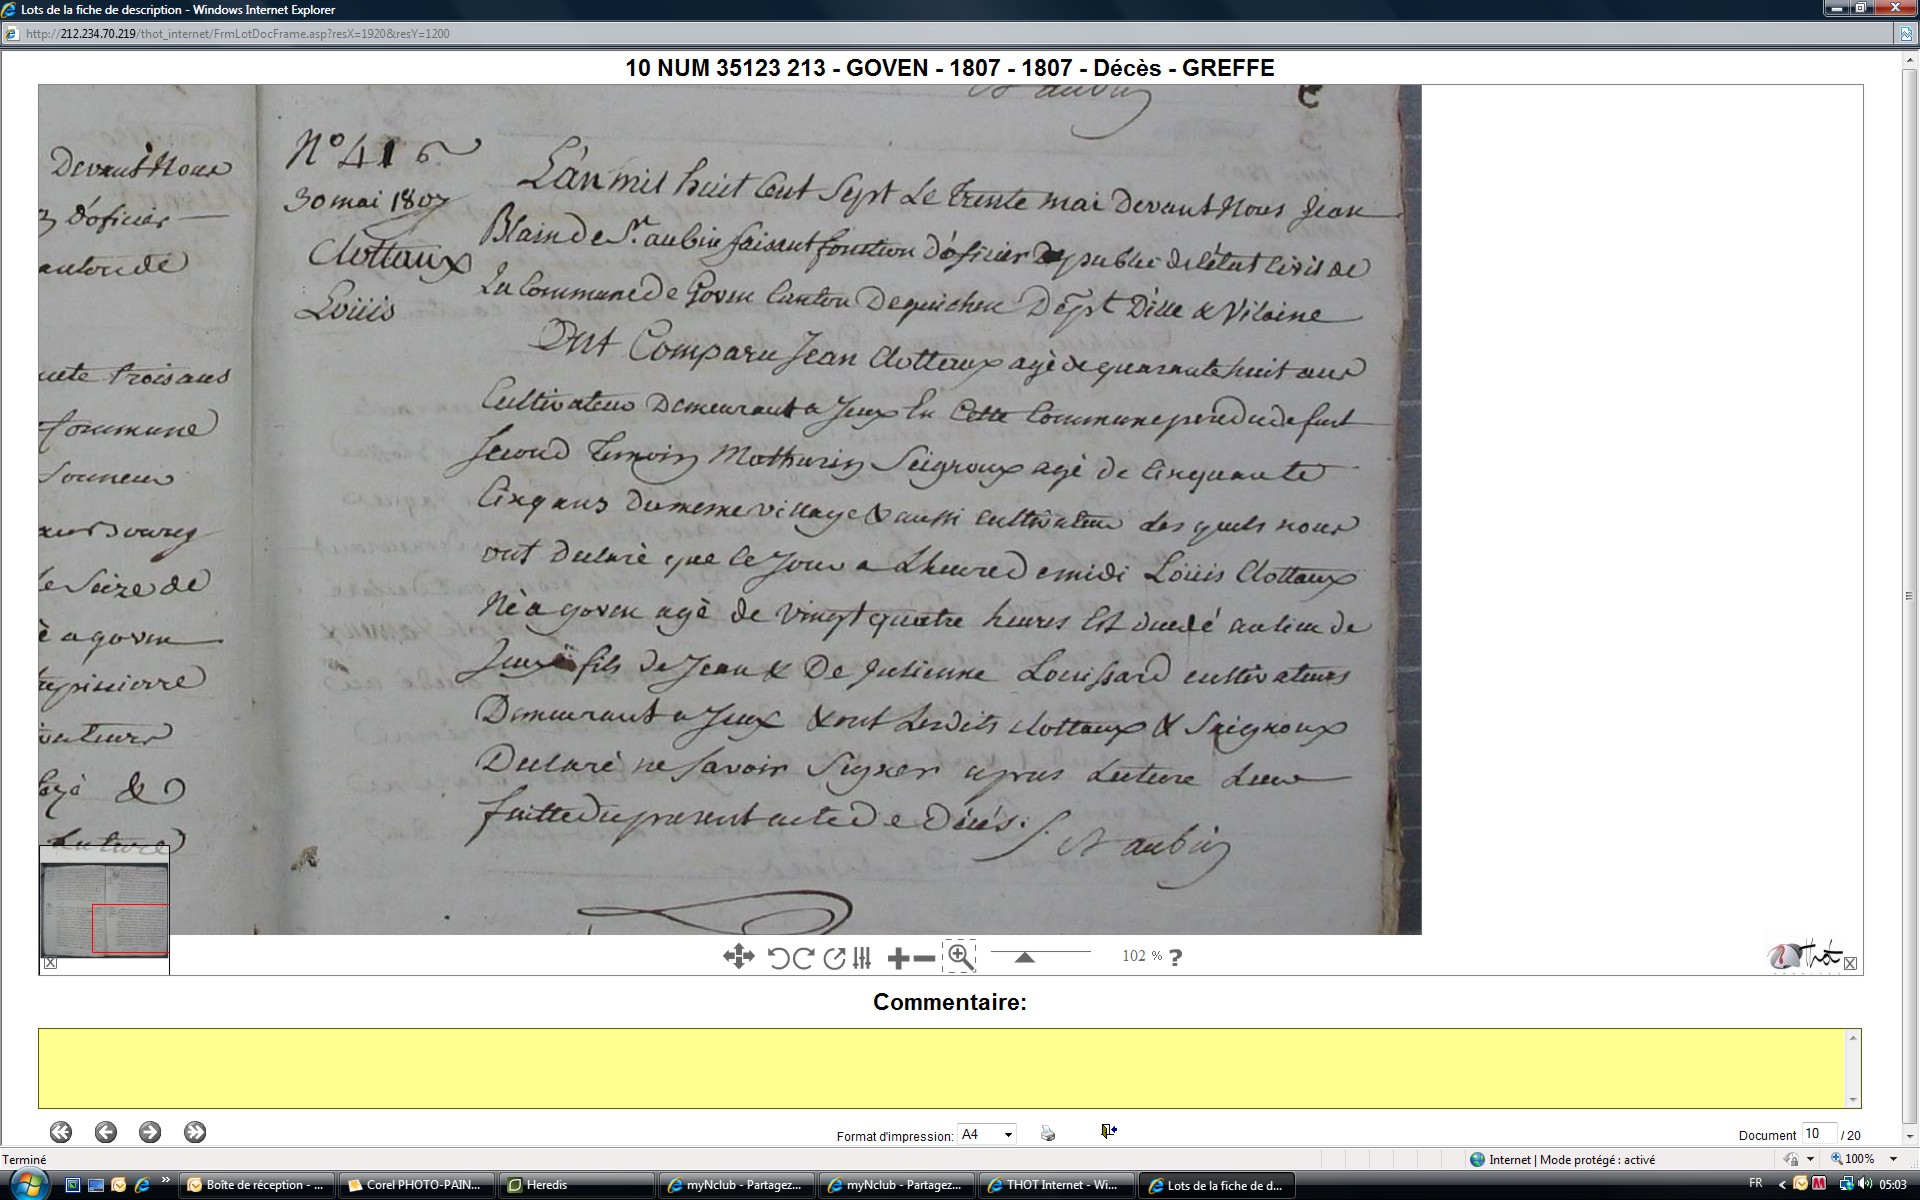 Lots de la fiche de description - Windows Internet Explorer
http://212.234.70.219/thot_internet/FrmLotDocFrame.asp?resX=1920&resY=1200
10 NUM 35123 213 - GOVEN - 1807 - 1807 - Décès - GREFFE
Devant Nous
d'oficier
canton de
trois ans
Commune
le Seize de
è a goven
Lecture
N° 416
30 mai 1807
Clottaux
Loüis
L'an mil huit Cent Sept Le trente mai Devant Nous Jean
Blain De St. aubin faisant fonction d'oficier public de l'état Civil de
La Commune de Goven Canton De guichen Dépt D'ille & Vilaine
Ont Comparu Jean Clottaux agè de quarante huit ans
Cultivateur Demeurant a Jeux En Cette Commune pere du defunt
Second temoin Mathurin Seigroux agè de Cinquante
Cinq ans du meme village & aussi Cultivateur des quels nous
ont declarè que ce Jour a L'heure de midi Loüis Clottaux
Nè a goven agè de vingt quatre heures Est decedé au lieu de
Jeux fils de Jean & De Julienne Louissard cultivateurs
Demeurant a Jeux & ont Lesdits Clottaux & Seigroux
Declarè ne Savoir Signer apres Lecture Leur
faitte du present acte De Décés.
St aubin
102 %
Thot
Commentaire:
Format d'impression: A4
Document 10 / 20
Terminé
Internet | Mode protégé : activé
100%
Boîte de réception - ...
Corel PHOTO-PAIN...
Heredis
myNclub - Partagez...
myNclub - Partagez...
THOT Internet - Wi...
Lots de la fiche de d...
FR
05:03